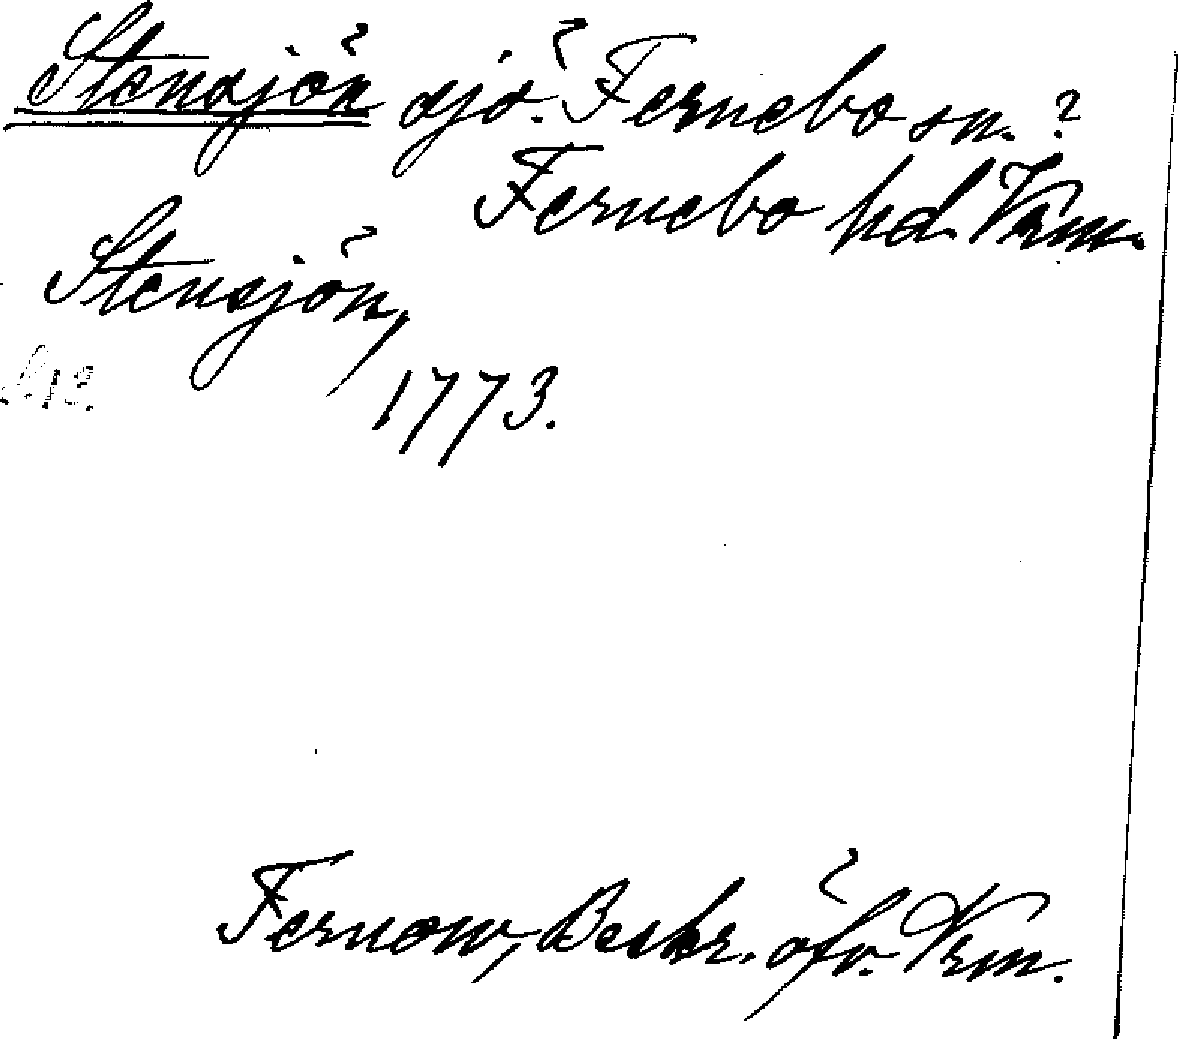 Stensjön sjö. Fernebo sn. ?
Fernebo hd. Vrm.
Stensjön,
1773.
Fernow, Beskr. öfv. Vrm.